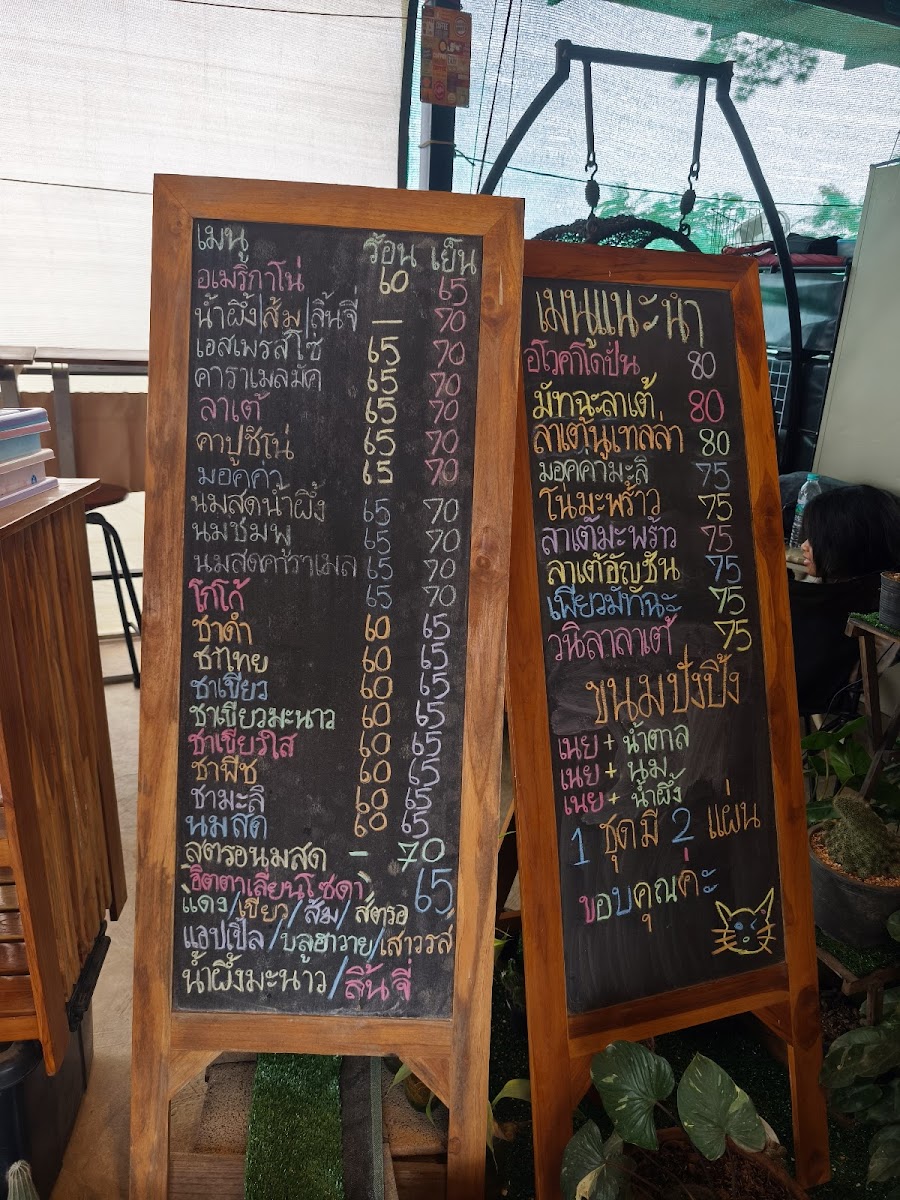 เมนู ร้อน เย็น
อเมริกาโน่ 60 65
น้ำผึ้ง/ส้ม/ลิ้นจี่ — 70
เอสเพรสโซ่ 65 70
คาราเมลมัค 65 70
ลาเต้ 65 70
คาปูชิโน่ 65 70
มอคค่า 65 70
นมสดน้ำผึ้ง 65 70
นมชมพู 65 70
นมสดคาราเมล 65 70
โกโก้ 65 70
ชาดำ 60 65
ชาไทย 60 65
ชาเขียว 60 65
ชาเขียวมะนาว 60 65
ชาเขียวใส 60 65
ชาพีช 60 65
ชามะลิ 60 65
นมสด 60 65
สตรอนมสด – 70
อิตตาเลียนโซดา 65
แดง/เขียว/ส้ม/สตรอ
แอปเปิ้ล/บลูฮาวาย/เสาวรส
น้ำผึ้งมะนาว/ลิ้นจี่
เมนูแนะนำ
อโวคาโดปั่น 80
มัทฉะลาเต้ 80
ลาเต้นูเทลล่า 80
มอคค่ามะลิ 75
โกโก้มะพร้าว 75
ลาเต้มะพร้าว 75
ลาเต้อัญชัน 75
เพียวมัทฉะ 75
วนิลาลาเต้ 75
ขนมปังปิ้ง
เนย + น้ำตาล
เนย + นม
เนย + น้ำผึ้ง
1 ชุดมี 2 แผ่น
ขอบคุณค่ะ